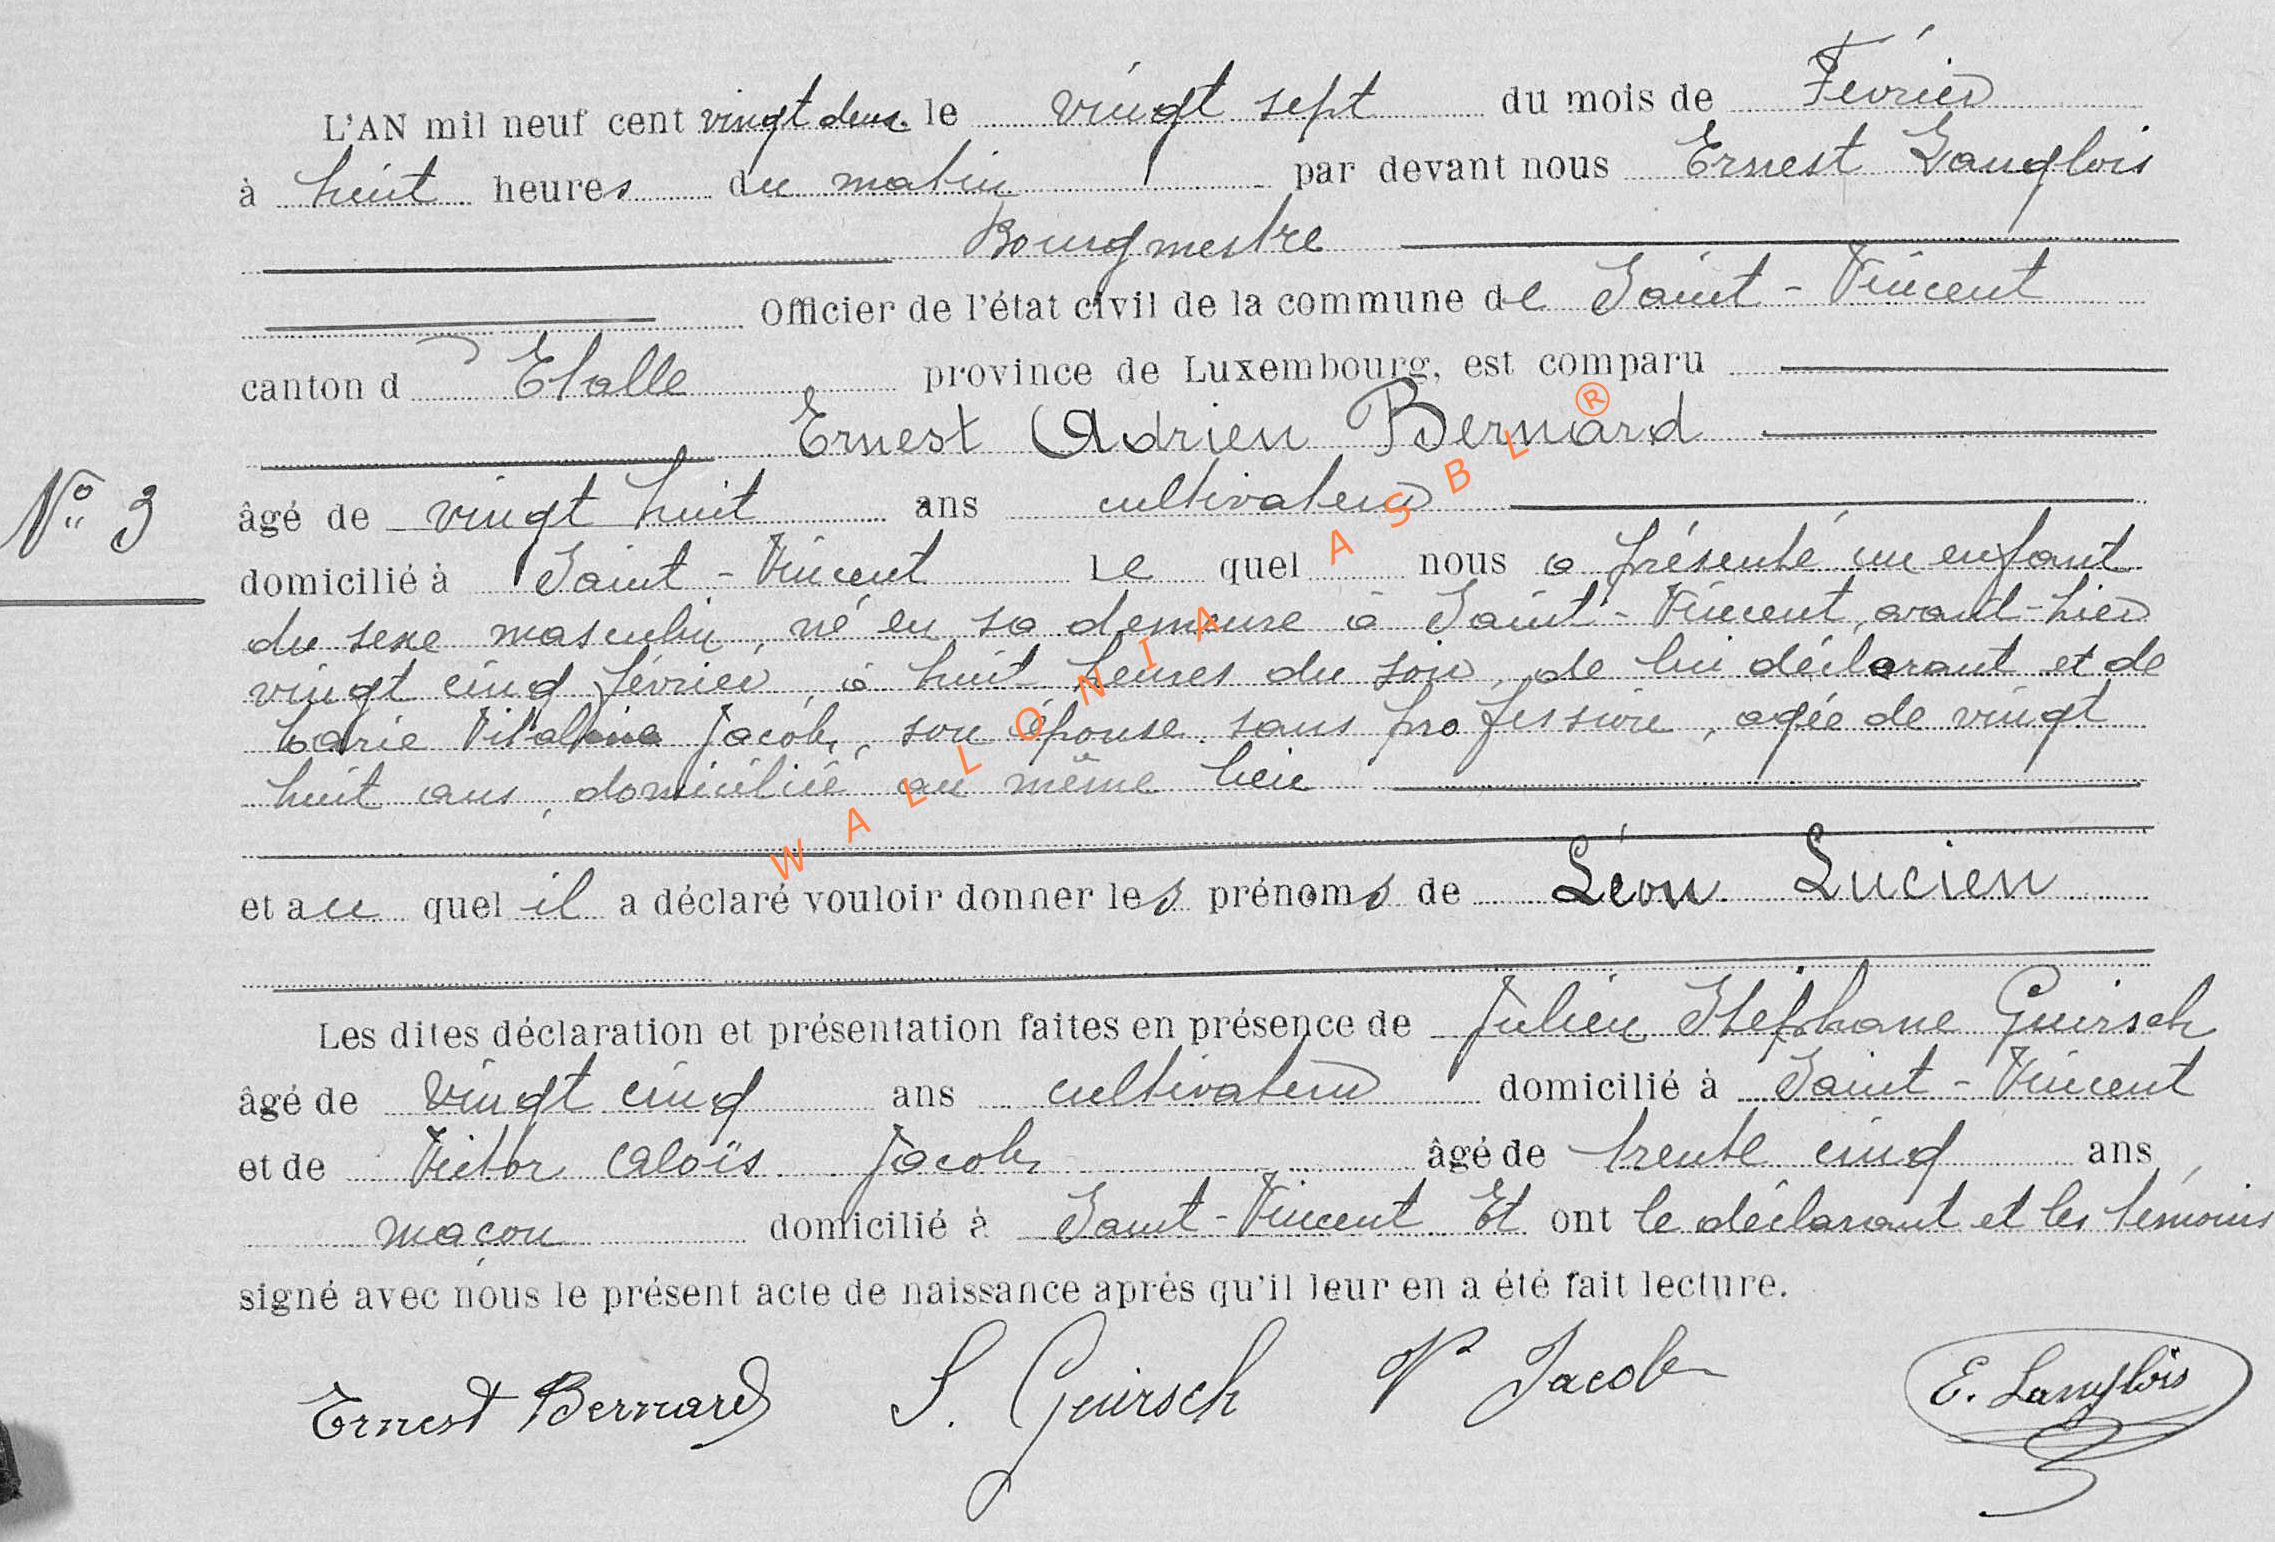 L'AN mil neuf cent vingt deux le vingt sept du mois de Février
à huit heures du matin par devant nous Ernest Langlois
Bourgmestre
Officier de l'état civil de la commune de Saint-Vincent
canton d'Etalle province de Luxembourg, est comparu
Ernest Adrien Bernard
N° 3
âgé de vingt huit ans cultivateur
domicilié à Saint-Vincent Le quel nous a présenté un enfant
du sexe masculin, né en sa demeure à Saint-Vincent, avant-hier
vingt cinq février, à huit heures du soir, de lui déclarant et de
Marie Jacob, son épouse sans profession, agée de vingt
huit ans, domiciliée au même lieu
et au quel il a déclaré vouloir donner les prénoms de Léon Lucien
Les dites déclaration et présentation faites en présence de Julien Stéphane Guirsch
âgé de vingt cinq ans cultivateur domicilié à Saint-Vincent
et de Victor Aloïs Jacob âgé de trente cinq ans
maçon domicilié à Saint-Vincent Et ont le déclarant et les témoins
signé avec nous le présent acte de naissance après qu'il leur en a été fait lecture.
Ernest Bernard S. Guirsch V Jacob E. Langlois
WALLONIA ASBL ®